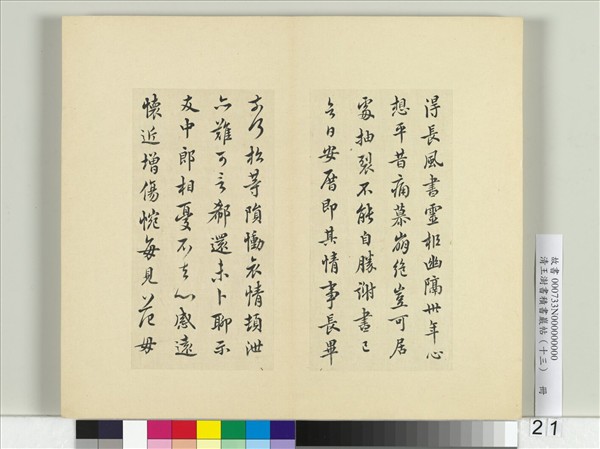 得長風書靈柩幽隔卅年心
想平昔痛慕崩絕豈可居
處抽裂不能自勝謝書已
日安厝即其情事長畢
松等隕慟哀情頓泄
亦難可言郗還未卜聊示
友中郎相憂不去心感遠
懷近增傷惋每見范母
故書 000733N000000000
清王澍書積書巖帖(十三) 冊
21